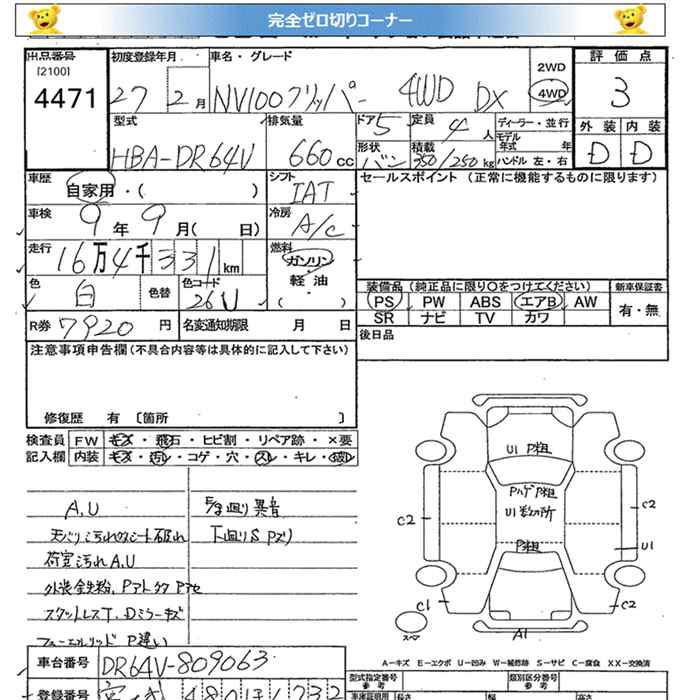 完全ゼロ切りコーナー
出品番号
[2100]
4471
初度登録年月
27 2月
車名・グレード
NV100クリッパー 4WD DX
2WD
4WD
評価点
3
外装 内装
D D
型式
HBA-DR64V
排気量
660cc
ドア 5
定員 4人
ディーラー・並行
モデル年式 年
形状 バン
積載 350/250kg
ハンドル 左・右
車歴
自家用・( )
シフト
IAT
セールスポイント (正常に機能するものに限ります)
車検
9年9月( 日)
冷房
A/C
走行
16万4千331km
燃料
ガソリン
軽油
( )
色
白
色替
色コード
26U
装備品(純正品に限り○をつけてください)
新車保証書
PS PW ABS エアB AW
有・無
SR ナビ TV カワ
R券 7920円
名変通知期限 月 日
後日品
注意事項申告欄(不具合内容等は具体的に記入して下さい)
修復歴 有 [箇所 ]
検査員 FW キズ・飛石・ヒビ割・リペア跡・×要
記入欄 内装 キズ・汚レ・コゲ・穴・スレ・キレ・破レ
A.U
天バリ汚れ シート破れ
荷室汚れ A.U
外装鉄粉.Pアト クク Pアセ
スタットレスT.Dミラーキズ
フューエルリッド P違い
5/8廻り異音
下廻りS Pズリ
U1 P粗
Pハゲ P粗
U1数ヶ所
P粗
C2
C2
U1
C1
C2
A1
スペア
A-キズ E-エクボ U-凹み W-補修跡 S-サビ C-腐食 XX-交換済
車台番号
DR64V-809063
登録番号
480
型式指定番号
参考
類別区分番号
参考
車庫証明用
長さ
幅
高さ